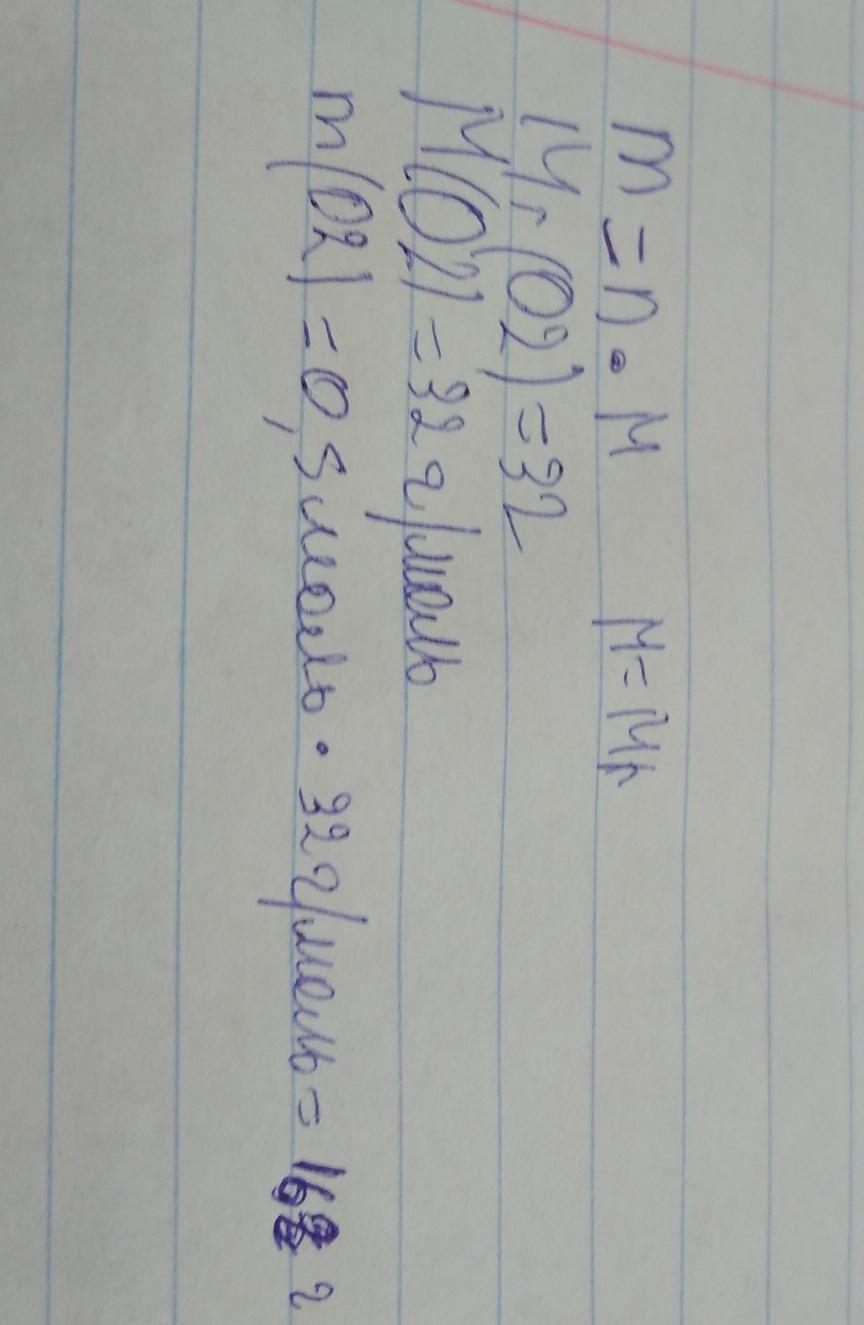 m = n • M M = Mr
Mr (O2) = 32
M(O2) = 32 г/моль
m(O2) = 0,5 моль • 32 г/моль = 16 г